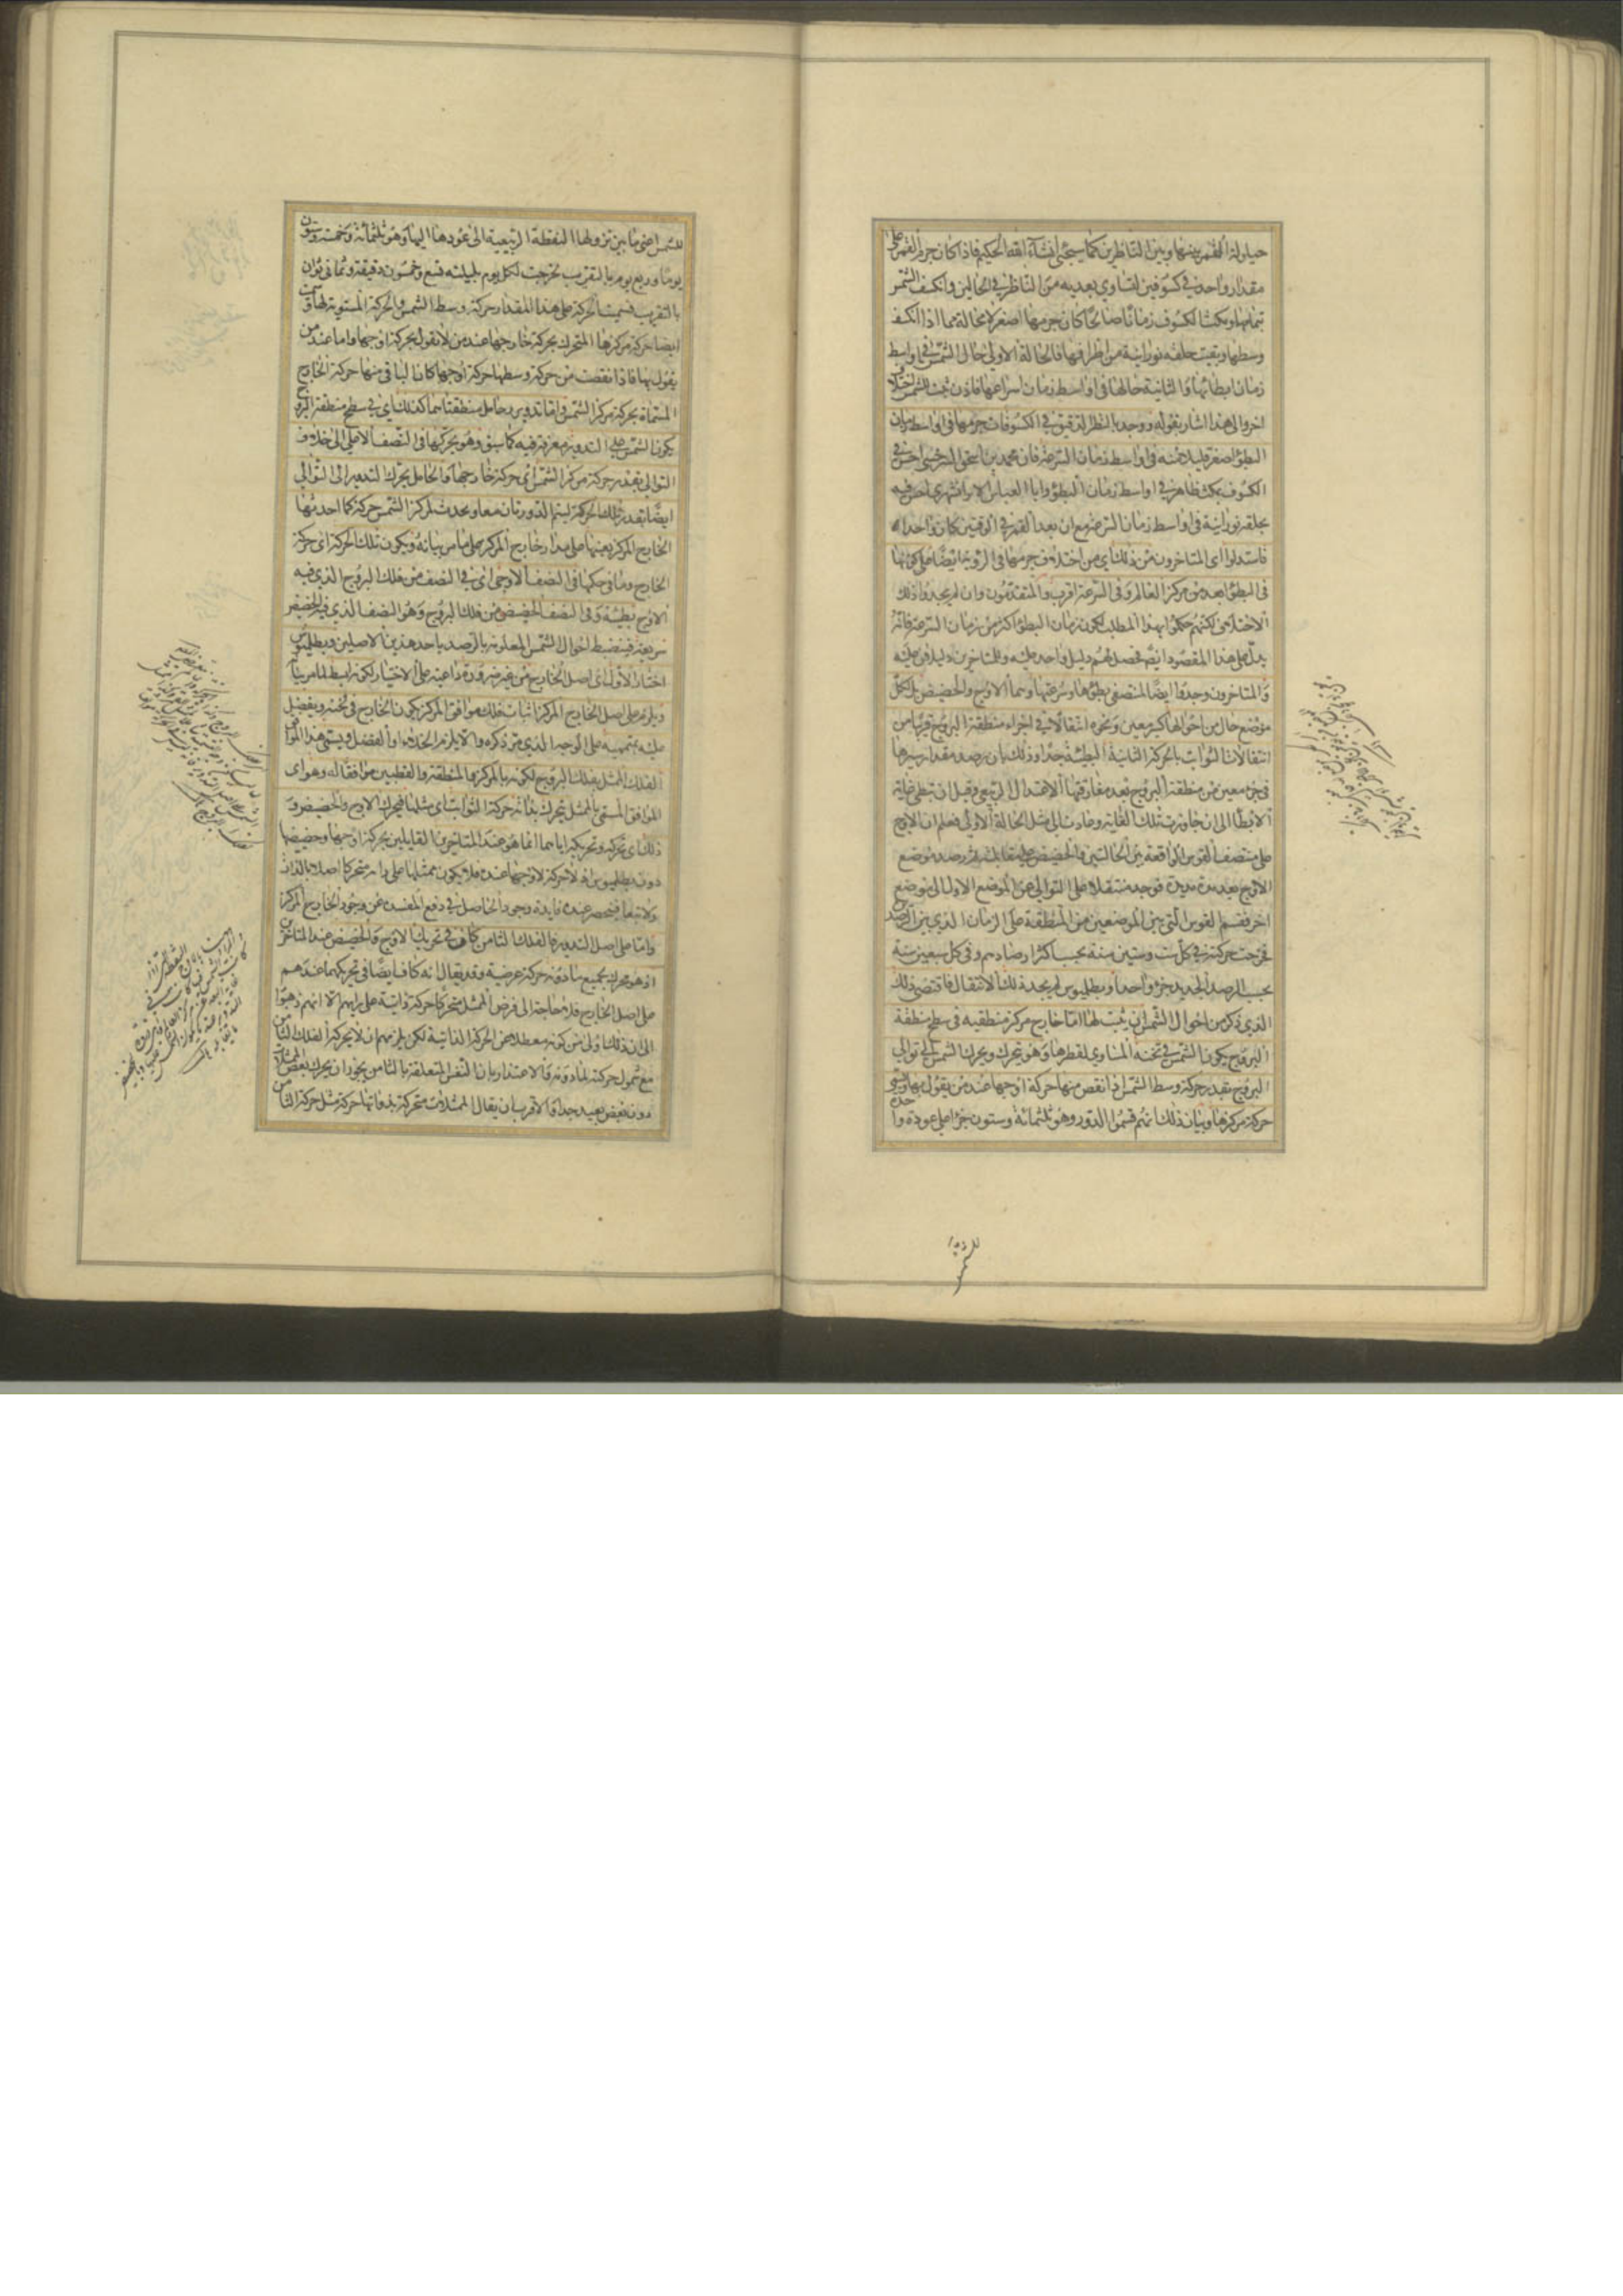 حيلولة القمر بينها وبين الناظرين كما سيجئ انشاء الله الحكيم فاذا كان جرم القمر على
مقدار واحد في كسوفين لتساوي بعديه من الناظر في الحالين وانكسف الشمس
بتمامها ومكث الكسوف زمانا صالحا كان جرمها اصغر لا محالة مما اذا انكسف
وسطها وبقيت حلقة نورانية من اطرافها فالحالة الاولى حال الشمس في اواسط
زمان ابطائها والثانية حالها في اواسط زمان اسراعها فاذن ثبت للشمس اختلاف
اخر والى هذا اشار بقوله ووجد بالنظر الدقيق في الكسوفات جرمها في اواسط زمان
البطؤ اصغر قليلا منه في اواسط زمان السرعة فان محمد بن اسحق السرخسي احس في
الكسوف بمكث ظاهر في اواسط زمان البطؤ وابا العباس الايرانشهري احس فيه
بحلقة نورانية في اواسط زمان السرعة مع ان بعد القمر في الوقتين كان واحدا
فاستدلوا اى المتاخرون من ذلك اي من اختلاف جرمها في الرؤية ايضا على كونها
في البطؤ ابعد من مركز العالم وفي السرعة اقرب والمتقدمون وان لم يجدوا ذلك
الاختلاف لكنهم حكموا بهذا المطلب لكون زمان البطؤ اكثر من زمان السرعة فانه
يدل على هذا المقصود ايضا فحصل لهم دليل واحد عليه وللمتاخرين دليلان عليه
والمتاخرون وجدوا ايضا لمنتصفي بطؤها وسرعتها وهما الاوج والحضيض بل لكل
موضع حال من احوالها كبر معين ونحوه انتقالا في اجزاء منطقة البروج قريبا من
انتقالات الثوابت بالحركة الثانية البطيئة جدا وذلك بان رصدوا مقدار سيرها
في جزء معين من منطقة البروج بعد مفارقتها الاعتدال الربيعي وقبل ان تبطئ غاية
الابطا الى ان جاوزت تلك الغاية وعادت الى مثل الحالة الاولى فعلم ان الاوج
على منتصف القوس الواقعة بين الحالتين والحضيض على مقابلته ثم رصد موضع
الاوج بعد مدة مديدة فوجد منتقلا على التوالي عن الموضع الاول الى موضع
اخر فقسم القوس التي بين الموضعين من المنطقة على الزمان الذي بين الرصدين
فخرجت حركته في كل ست وستين سنة بحسب اكثر ارصادهم وفي كل سبعين سنة
بحسب الرصد الجديد جزؤا واحدا وبطليوس لم يجد ذلك الانتقال فاقتضى ذلك
الذي ذكر من احوال الشمس ان يثبت لها اما خارج مركز منطقته في سطح منطقة
البروج يكون الشمس في ثخنه المساوي لقطرها وهو يتحرك ويحرك الشمس الى توالي
البروج بقدر حركة وسط الشمس اذا نقص منها حركة اوجها عند من يقول بها ويسمى
حركة مركزها وبيان ذلك انهم قسموا الدور وهو ثلثمائة وستون جزءا على عودة واحدة
للشمس
للشمس اعنى ما بين نزولها النقطة الربيعية الى عودها اليها وهو ثلثمائة وخمسة وستون
يوما وربع يوم بالتقريب فخرجت لكل يوم بليلته تسع وخمسون دقيقة وثماني ثوان
بالتقريب فسميت الحركة على هذا المقدار حركة وسط الشمس والحركة المستوية لها وسميت
ايضا حركة مركزها المتحرك بحركة خارجها عند من لا يقول بحركة اوجها واما عند من
يقول بها فاذا نقصت من حركة وسطها حركة اوجها كان الباقي منها حركة الخارج
المسماة بحركة مركز الشمس واما تدوير وحامل منطقتاهما كذلك اي في سطح منطقة البروج
يكون الشمس على التدوير مغرقة فيه كما سبق وهو يحركها في النصف الاعلى الى خلاف
التوالي بقدر حركة مركز الشمس اي حركة خارجها والحامل يحرك التدوير الى التوالي
ايضا بقدر تلك الحركة ليتم الدورتان معا ويحدث لمركز الشمس حركة كما احدثها
الخارج المركز بعينها على مدار خارج المركز على ما مر بيانه ويكون تلك الحركة اي حركة
الخارج وما في حكمها في النصف الاوجي اي في النصف من فلك البروج الذي فيه
الاوج بطيئة وفي النصف الحضيضي من فلك البروج وهو النصف الذي فيه الحضيض
سريعة فينضبط احوال الشمس المعلومة بالرصد باحد هذين الاصلين وبطليوس
اختار الاول اى اصل الخارج من غير ضرورة داعية على الاختيار لكونه ابسط لما مر بيانه
ويلزم على اصل الخارج المركز اثبات فلك موافق المركز يكون الخارج في ثخنه ويفضل
عليه بمتممية على الوجه الذي مر ذكره والا يلزم الخلاء او الفصل ويسمى هذا الموافق
الفلك الممثل بفلك البروج لكونه بالمركز والمنطقة والقطبين موافقا له وهو اى
الموافق المسمى بالممثل يتحرك بذاته حركة الثوابت اى مثلها فيحرك الاوج والحضيض و
ذلك اى تحركه وتحريكه اياهما انما هو عند المتاخرين القايلين بحركة اوجها وحضيضها
دون بطليوس اذ لا حركة لاوجها عنده فلا يكون ممثلها على رايه متحركا اصلا بالذات
ولا تبعا فينحصر عنده فايدة وجود الحاصل في دفع المفسدة عن وجود الخارج المركز
واما على اصل التدوير فالفلك الثامن كاف في تحريك الاوج والحضيض عند المتاخرين
اذ هو محرك لجميع ما دونه حركة عرضية وقد يقال انه كاف ايضا في تحريكهما عندهم
على اصل الخارج فلا حاجة الى فرض الممثل متحركا حركة ذاتية على رايهم الا انهم ذهبوا
الى ان ذلك اولى من كونه معطلا عن الحركة الذاتية لكن يلزمهم ان لا يحركه الفلك الثامن
مع شمول حركته لما دونه والاعتذار بان النفس المتعلقة بالثامن يجوز ان يحرك بعض الممثلات
دون بعض بعيد جدا والاقرب ان يقال الممثلات متحركة بذواتها حركة مثل حركة الثامن